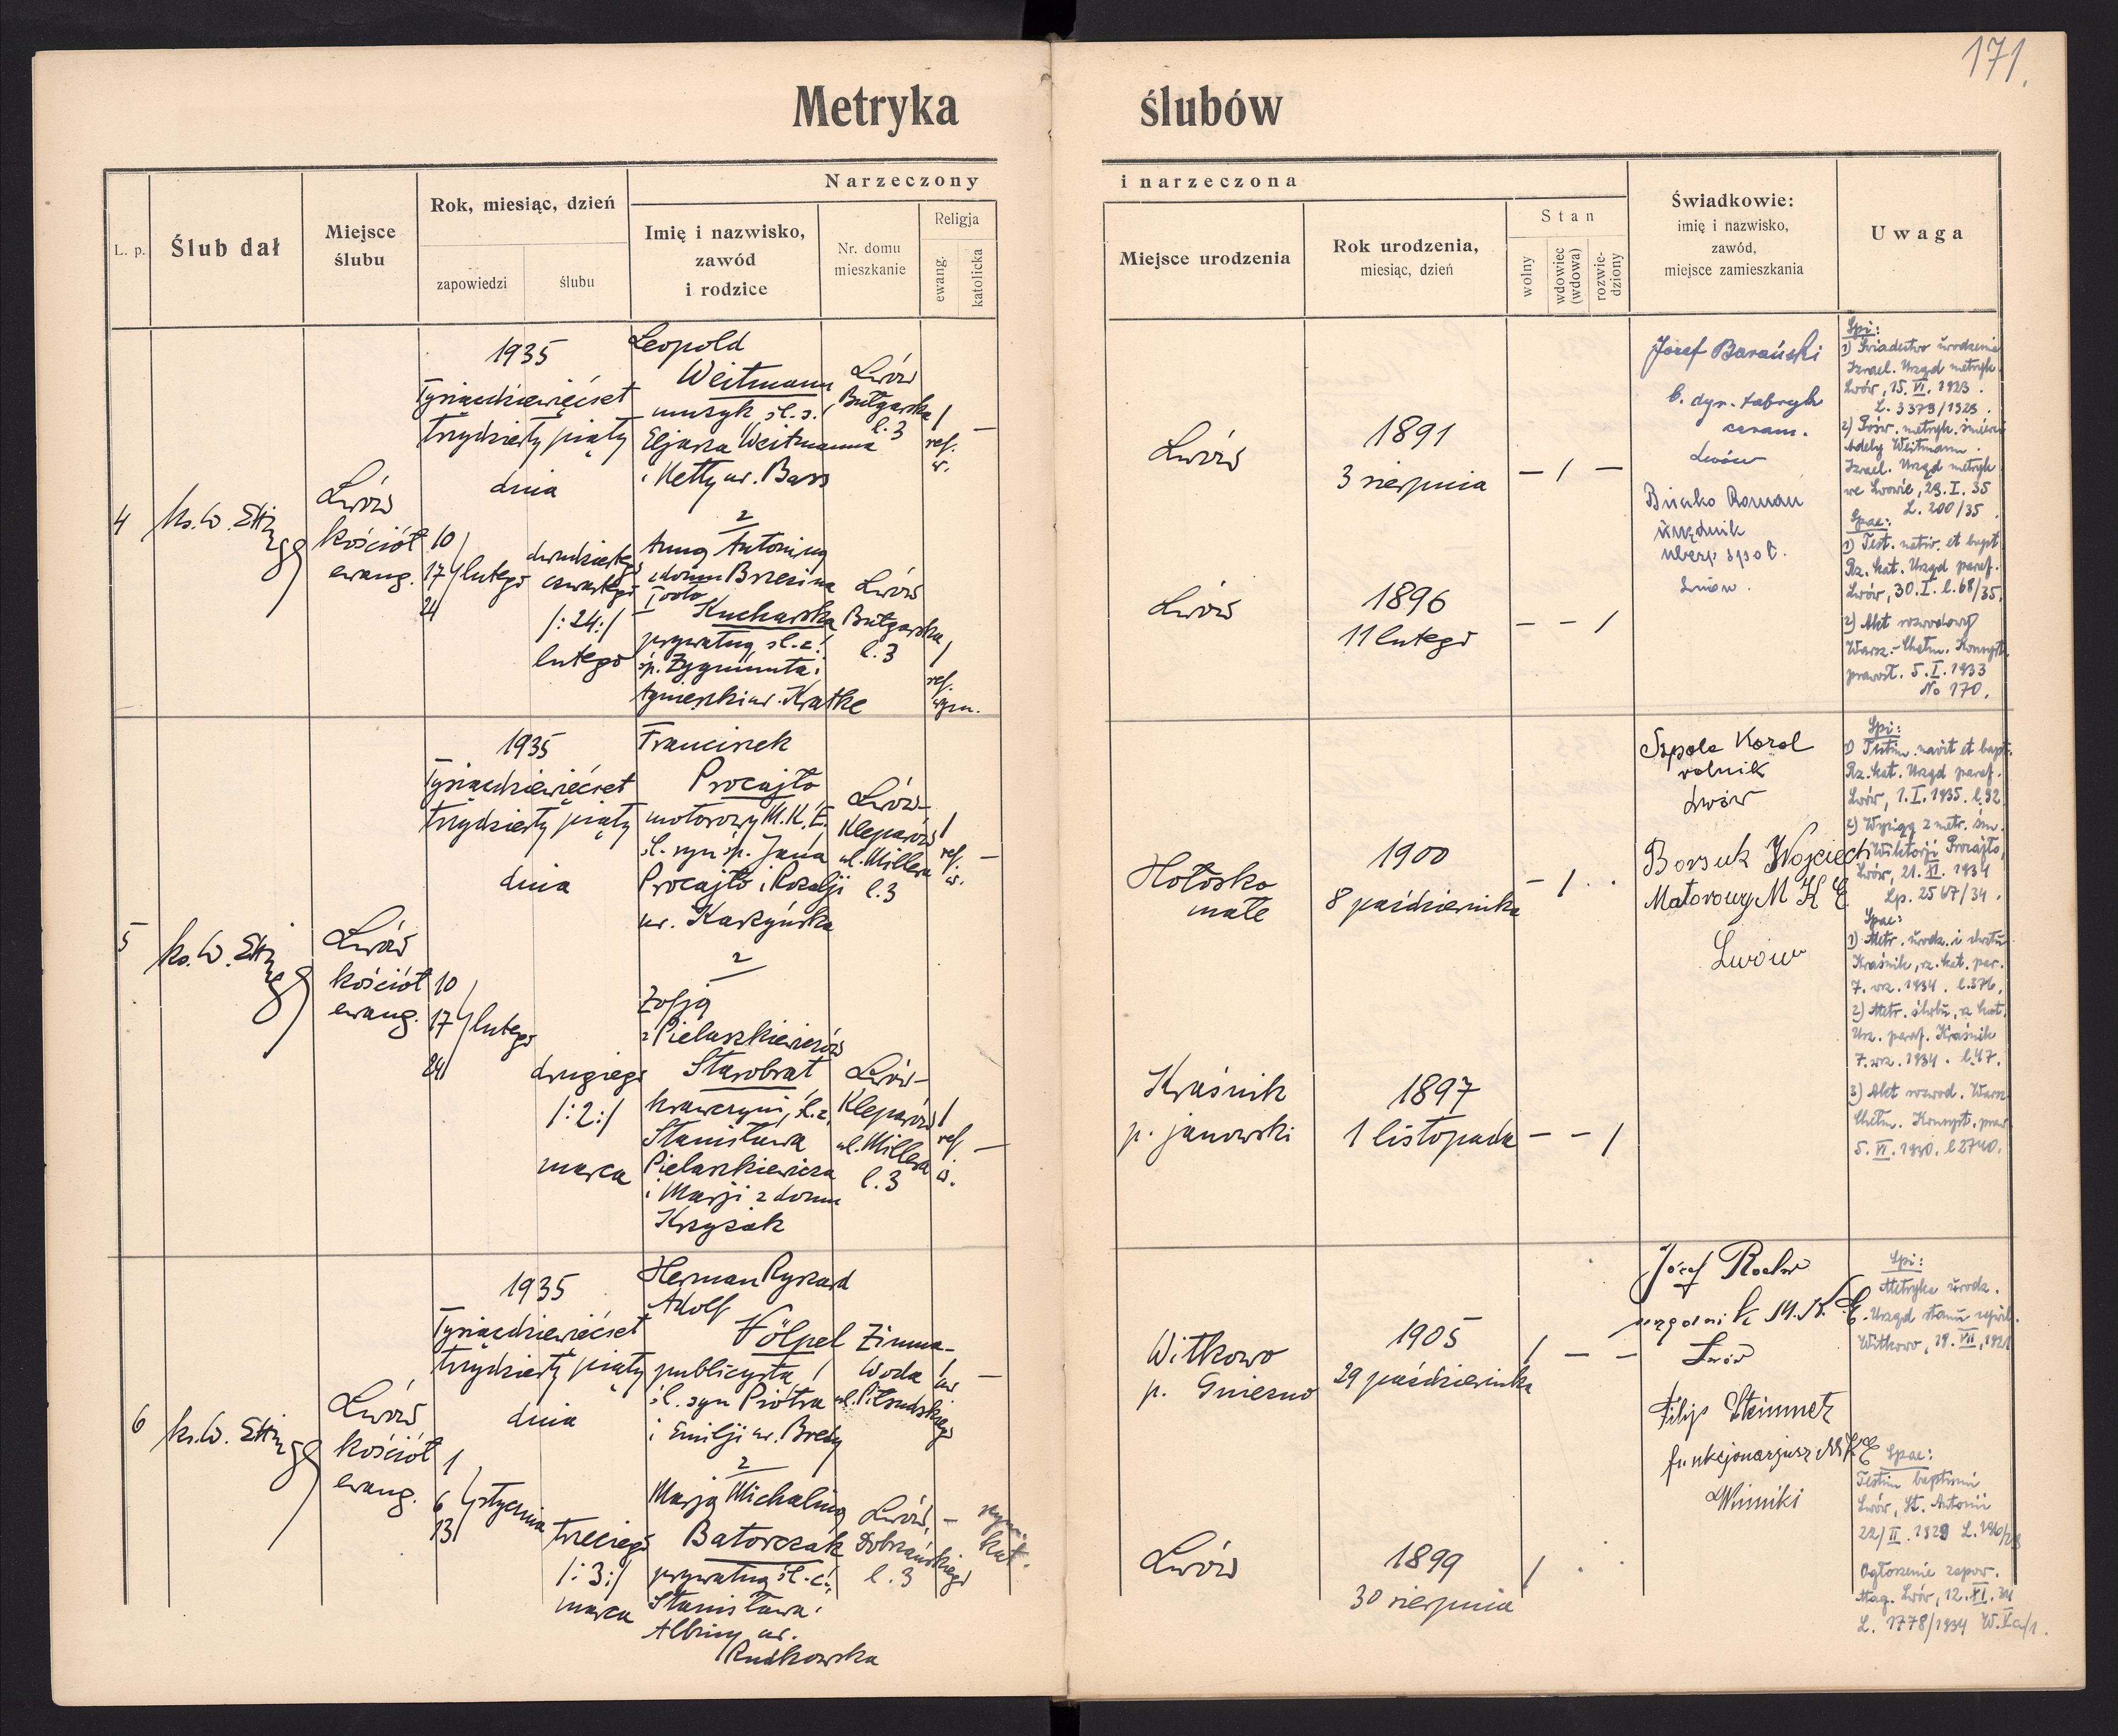 171.
Metryka ślubów
L. p.
Ślub dał
Miejsce
ślubu
Rok, miesiąc, dzień
zapowiedzi
ślubu
Narzeczony
Imię i nazwisko,
zawód
i rodzice
Nr. domu
mieszkanie
Religja
ewang.
katolicka
i narzeczona
Miejsce urodzenia
Rok urodzenia,
miesiąc, dzień
Stan
wolny
wdowiec
(wdowa)
rozwie-
dziony
Świadkowie:
imię i nazwisko,
zawód,
miejsce zamieszkania
Uwaga
4
ks. W.
Lwów
kościół
ewang.
1935
Tysiącdziewięćset
trzydziesty piąty
dnia
10
17 lutego
24
dwudziestego
czwartego
/:24:/
lutego
Leopold
Weitmann
muzyk, śl. s.
Eljasza Weitmanna
i Netty ur. Bass
Lwów
Bułgarska
l. 3
/
ref.
w.
—
2
Annę Antoninę
z domu Brzezina
I voto
Kucharska
prywatną, śl. c.
śp. Zygmunta i
Agnieszki ur. Kratke
Lwów
Bułgarska
l. 3
/
ref.
wyzn.
Lwów
1891
3 sierpnia
— / —
Lwów
1896
11 lutego
— — /
Józef Barański
b. dyr. fabryk
ceram.
Lwów
Roman
urzędnik
ubezp. społ.
Lwów.
Spi:
1) Świadectwo urodzenia
Izrael. Urząd metryk.
Lwów, 15. VI. 1923.
L. 3379/1923.
2) Pośw. metryk. śmierci
Adeli Weitmann.
Izrael. Urząd metryk
we Lwowie, 29. I. 35
L. 200/35.
Spae:
1) Test. nativ. et bapt
Rz. kat. Urząd paraf.
Lwów, 30. I. l. 68/35.
2) Akt rozwodowy
Warsz.-Chełm. Konsyst.
prawosł. 5. I. 1933
No 170.
5
ks. W.
Lwów
kościół
ewang.
1935
Tysiącdziewięćset
trzydziesty piąty
dnia
10
17 lutego
24
drugiego
/:2:/
marca
Franciszek
Procajło
motorowy M.K.E.
śl. syn śp. Jana
Procajło i Rozalji
ur. Karzyńska
Lwów-
Kleparów
ul. Millera
l. 3
/
ref.
w.
—
2
Zofję
z Pielaszkiewiczów
Starobrat
krawczyni, śl. c.
Stanisława
Pielaszkiewicza
i Marji z domu
Krzyżak
Lwów-
Kleparów
ul. Millera
l. 3
/
ref.
w.
—
Hołosko
małe
1900
8 października
— / .
Kraśnik
p. janowski
1897
1 listopada
— — /
Szpala Karol
rolnik
Lwów
Borsuk Wojciech
Motorowy M K E
Lwów
Spi:
1) Testim. nativit et bapt.
Rz. kat. Urząd paraf.
Lwów, 1. I. 1935. l. 92
2) Wyciąg z metr. śm.
Wiktorji Procajło,
Lwów, 21. XI. 1934
Lp. 2567/34.
Spae:
1) Metr. urodz. i chrztu
Kraśnik, rz. kat. par.
7. wrz. 1934. l. 376.
2) Metr. ślubu, rz kat.
Urz. paraf. Kraśnik
7. wrz. 1934. l. 47.
3) Akt rozwod. Warsz
Chełm. Konsyst. praw.
5. VI. 1930. l 2740.
6
ks. W.
Lwów
kościół
ewang.
1935
Tysiącdziewięćset
trzydziesty piąty
dnia
1
6 stycznia
13
trzeciego
/:3:/
marca
Herman Ryszard
Adolf
Völpel
publicysta,
śl. syn Piotra
i Emilji ur. Bredy
Zimna-
Woda
ul. Piłsudskiego
/
—
2
Marję Michalinę
Batorczak
prywatną śl. c.
Stanisława i
Albiny ur.
Rudkowska
Lwów,
Dobrzańskiego
l. 3
—
rzym.
kat.
Witkowo
p. Gniezno
1905
29 października
/ — —
Lwów
1899
30 sierpnia
/ .
Józef
M.K.E.
Lwów
Filip Steinmetz
funkcjonarjusz MKE
Winniki
Spi:
Metryka urodz.
Urząd stanu cywil.
Witkowo, 19. VII. 1921
Spae:
Testim baptismi
Lwów, St. Antonii
22/II. 1929
Ogłoszenie zapow.
Mag. Lwów, 12. XI. 34
L. 1778/1934